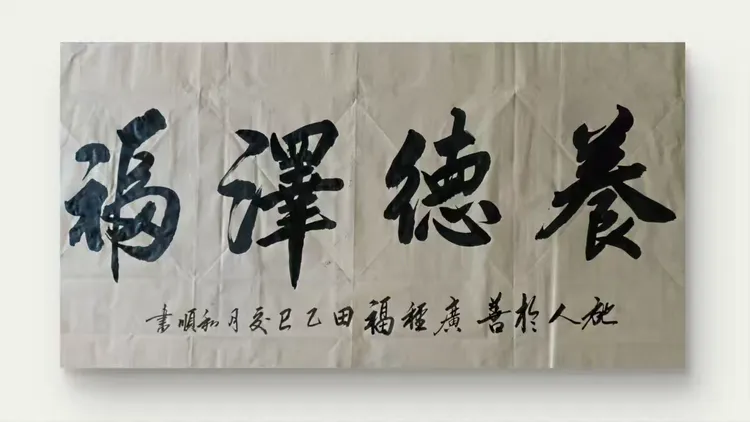 養德澤福
人於善廣種福田乙巳月和順書